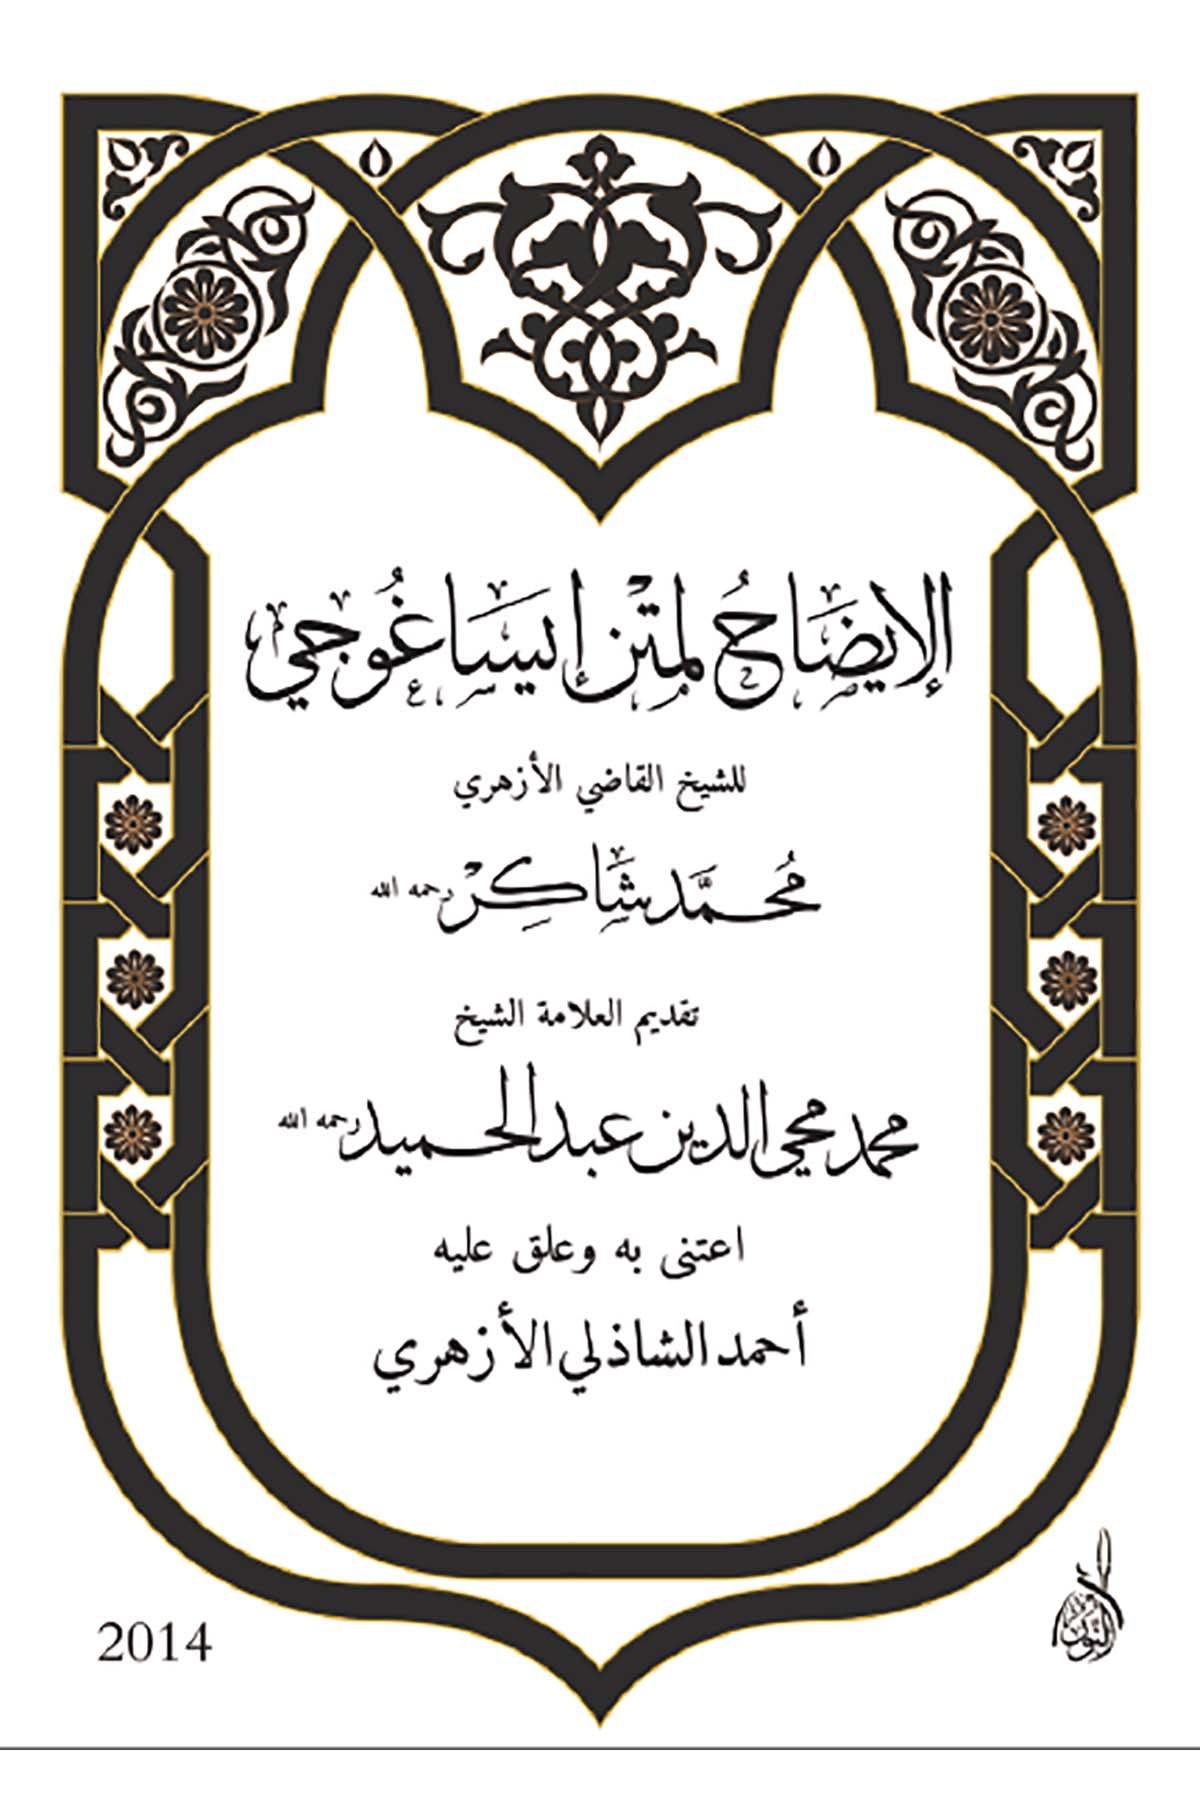 الإيضَاحُ لمتْن إيسَاغُوجي
للشيخ القاضي الأزهري
مُحمَّد شَاكِرْ رحمه الله
تقديم العلامة الشيخ
محمد محيي الدين عبد الحميد رحمه الله
اعتنى به وعلق عليه
أحمد الشاذلي الأزهري
2014